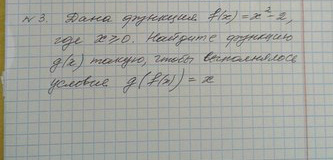 №3. Дана функция f(x) = x² - 2,
где x ≥ 0. Найдите функцию
g(x) такую, чтобы выполнялось
условие g(f(x)) = x